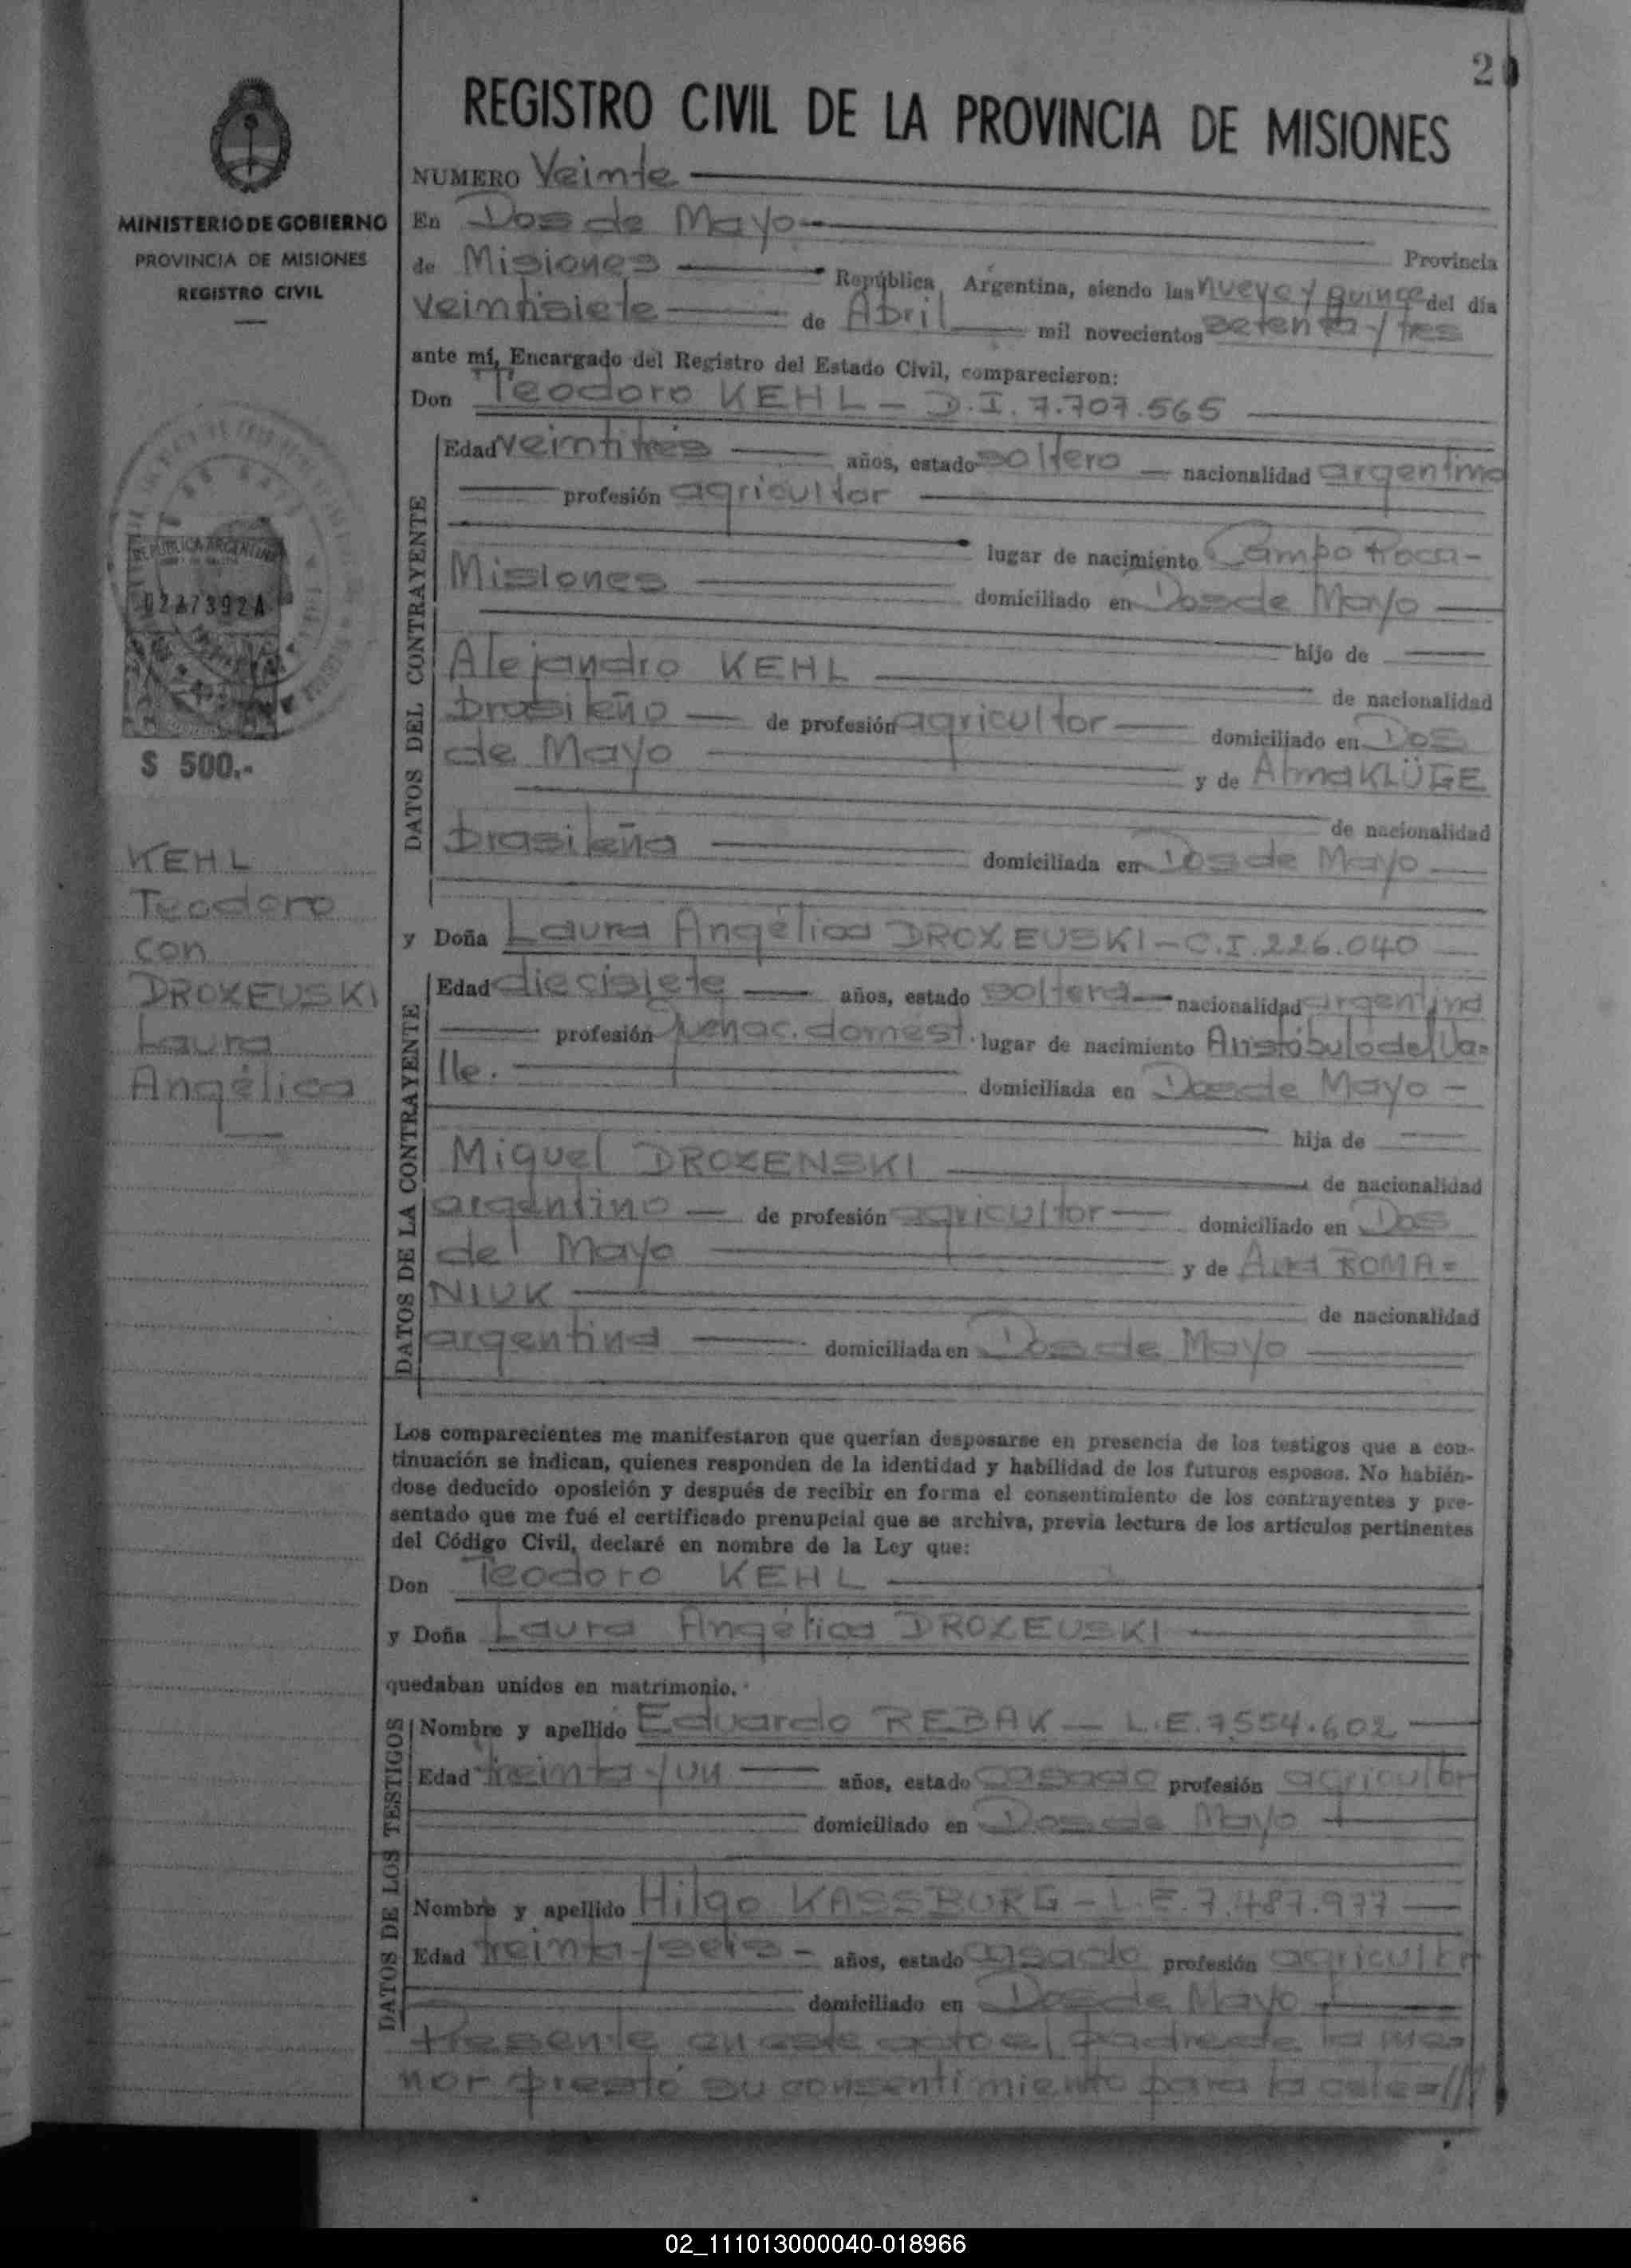 20
REGISTRO CIVIL DE LA PROVINCIA DE MISIONES
MINISTERIO DE GOBIERNO
PROVINCIA DE MISIONES
REGISTRO CIVIL
REPUBLICA ARGENTINA
$ 500.-
KEHL
Teodoro
con
DROZEUSKI
Laura
Angélica
NUMERO Veinte
En Dos de Mayo Provincia
de Misiones República Argentina, siendo las nueve y quince del día
veintisiete de Abril mil novecientos setenta y tres
ante mí, Encargado del Registro del Estado Civil, comparecieron:
Don Teodoro KEHL - D.I. 7.707.565
DATOS DEL CONTRAYENTE
Edad veintitrés años, estado soltero nacionalidad argentino
profesión agricultor
lugar de nacimiento Campo Roca -
Misiones domiciliado en Dos de Mayo
hijo de
Alejandro KEHL de nacionalidad
brasileño de profesión agricultor domiciliado en Dos
de Mayo y de Alma KLÜGE
de nacionalidad
brasileña domiciliada en Dos de Mayo
y Doña Laura Angélica DROZEUSKI - C.I. 226.040
DATOS DE LA CONTRAYENTE
Edad diecisiete años, estado soltera nacionalidad argentina
profesión quehac. domest. lugar de nacimiento Aristóbulo del Va=
lle. domiciliada en Dos de Mayo -
hija de
Miguel DROZENSKI de nacionalidad
argentino de profesión agricultor domiciliado en Dos
de Mayo y de ROMA=
NIUK de nacionalidad
argentina domiciliada en Dos de Mayo
Los comparecientes me manifestaron que querían desposarse en presencia de los testigos que a con-
tinuación se indican, quienes responden de la identidad y habilidad de los futuros esposos. No habién-
dose deducido oposición y después de recibir en forma el consentimiento de los contrayentes y pre-
sentado que me fué el certificado prenupcial que se archiva, previa lectura de los artículos pertinentes
del Código Civil, declaré en nombre de la Ley que:
Don Teodoro KEHL
y Doña Laura Angélica DROZEUSKI
quedaban unidos en matrimonio.
DATOS DE LOS TESTIGOS
Nombre y apellido Eduardo REBAK - L.E. 7.554.602
Edad treinta y un años, estado casado profesión agricultor
domiciliado en Dos de Mayo
Nombre y apellido Hilgo KASSBURG - L.E. 7.487.977
Edad treinta y seis - años, estado casado profesión agricultor
domiciliado en Dos de Mayo
Presente en este acto el padre de la me=
nor prestó su consentimiento para la cele=///
02_111013000040-018966